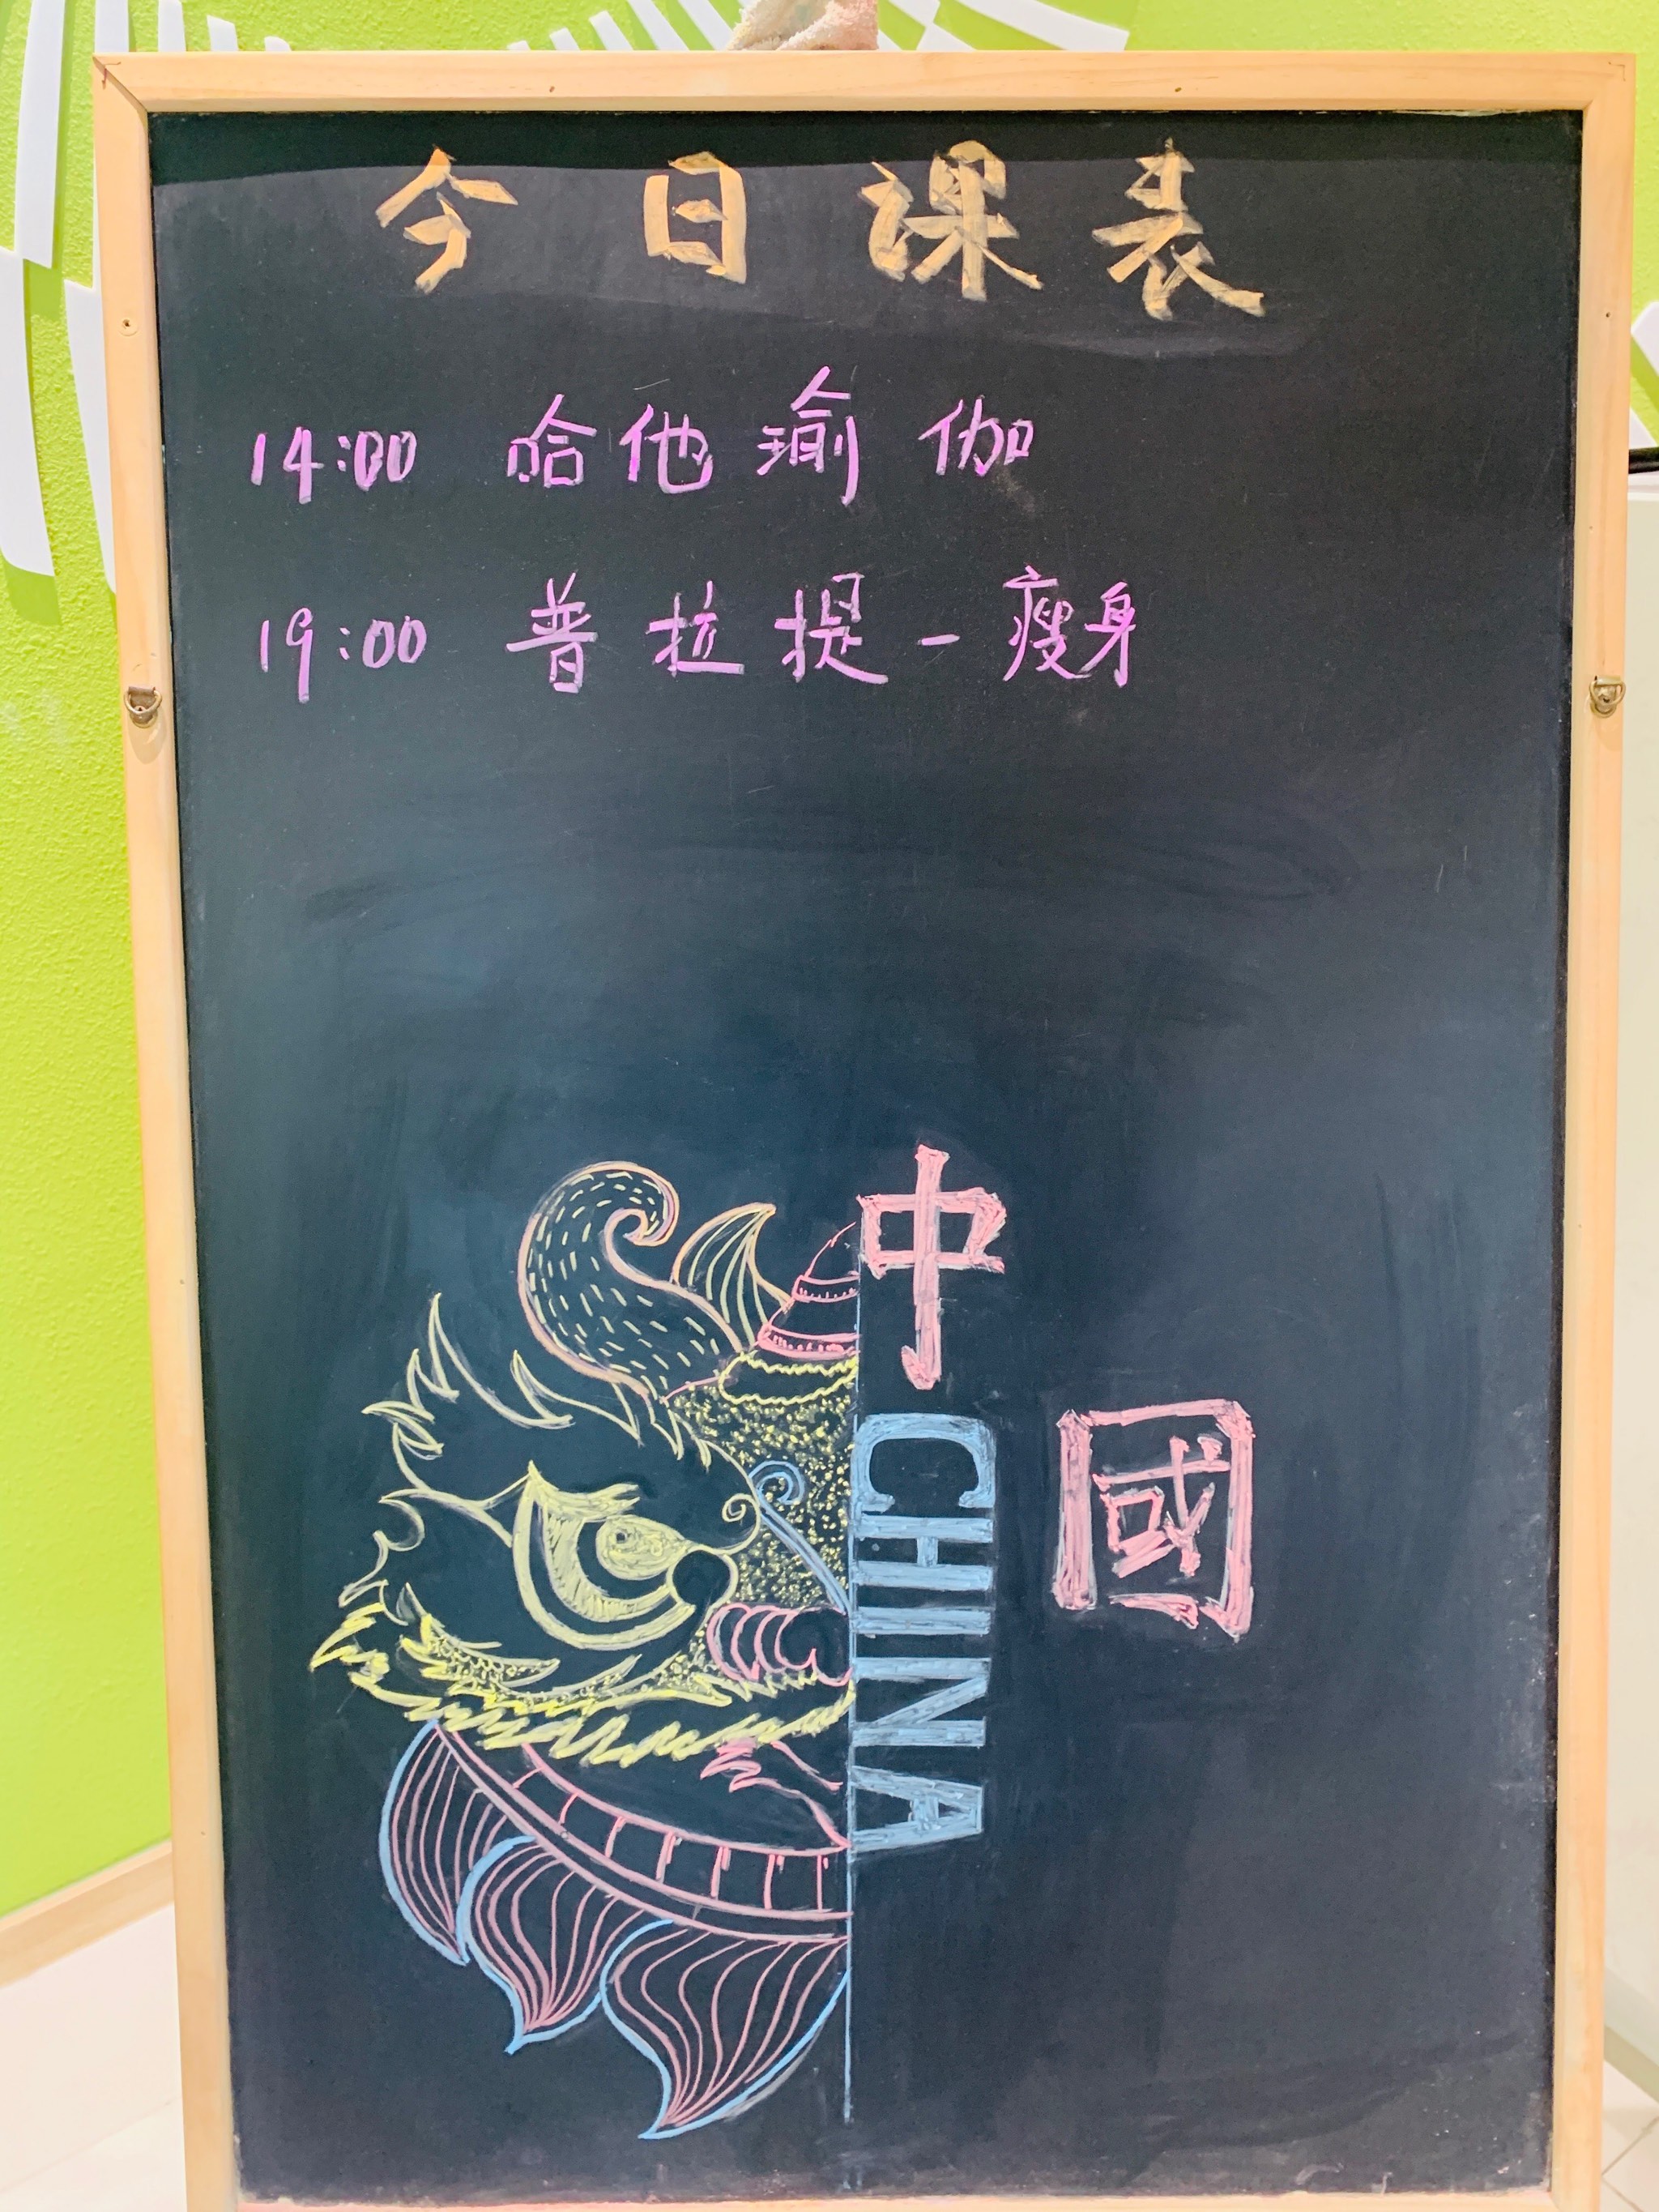 今日课表
14:00 哈他瑜伽
19:00 普拉提-瘦身
中國
CHINA